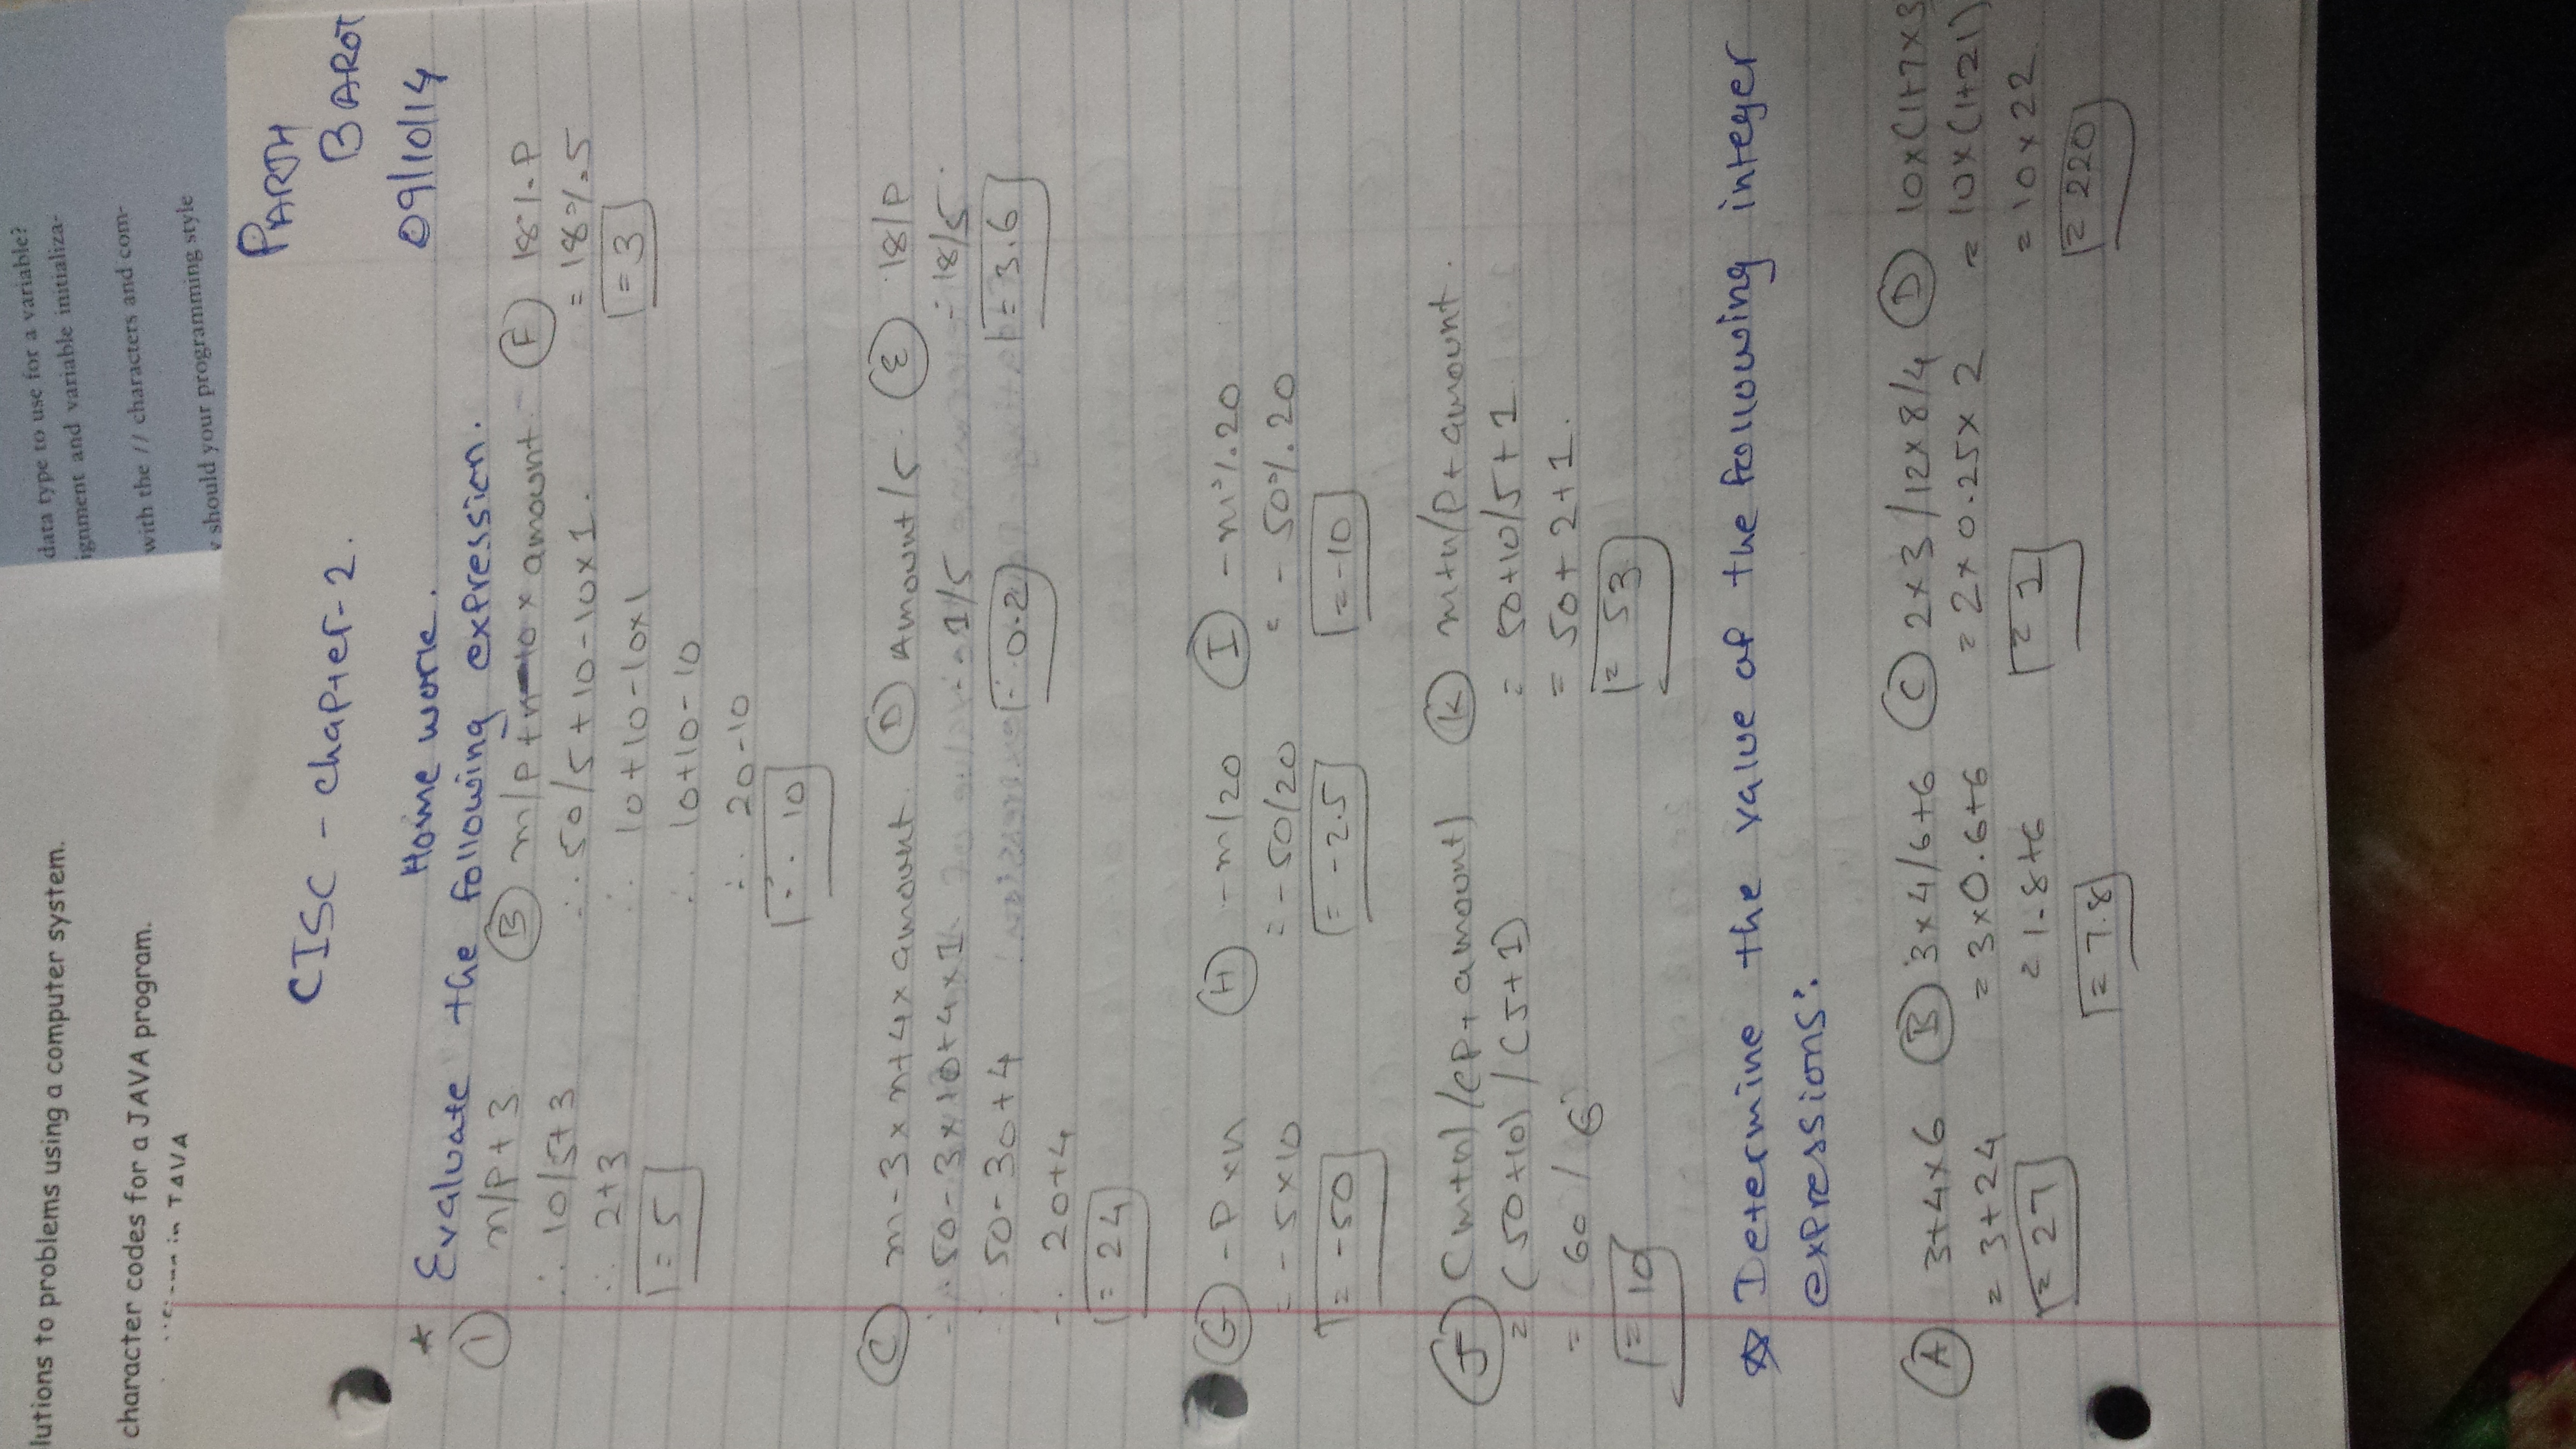 lutions to problems using a computer system.
character codes for a JAVA program.
in JAVA
data type to use for a variable?
ignment and variable initializa-
with the // characters and com-
should your programming style
PARTH
BAROT
09/10/14
CISC - chapter-2.
Home work.
* Evaluate the following expression.
① n/p + 3
∴ 10/5+3
∴ 2+3
= 5
Ⓑ m/p + n-10 x amount
∴ 50/5+10-10x1.
∴ 10+10-10x1
∴ 10+10-10
∴ 20-10
∴ 10
Ⓕ 18%P
= 18%5
= 3
Ⓒ m-3xn+4x amount.
∴ 50-3x10+4x1
∴ 50-30+4
∴ 20+4
= 24
Ⓓ Amount/5
∴ 1/5
∴ 0.2
Ⓔ 18/P
= 18/5
= 3.6
Ⓖ -Pxn
= -5x10
= -50
Ⓗ -m/20
= -50/20
= -2.5
Ⓘ -m%20
= -50%20
= -10
Ⓙ (m+n)/(P+ amount)
= (50+10)/(5+1)
= 60/6
= 10
Ⓚ m+n/P+ amount.
= 50+10/5+1
= 50+2+1.
= 53
☆ Determine the value of the following integer
expressions:
Ⓐ 3+4x6
= 3+24
= 27
Ⓑ 3x4/6+6
= 3x0.6+6
= 1.8+6
= 7.8
Ⓒ 2x3/12x8/4
= 2x0.25x2
= 1
Ⓓ 10x(1+7x3
= 10x(1+21)
= 10x22
= 220